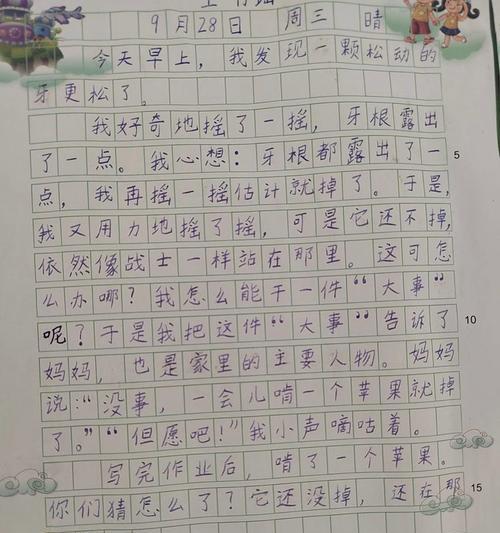 9月28日 周三 晴
今天早上，我发现一颗松动的
牙更松了。
我好奇地摇了一摇，牙根露出
了一点。我心想：牙根都露出了一
5
点，我再摇一摇估计就掉了。于是，
我又用力地摇了摇，可是它还不掉，
依然像战士一样站在那里。这可怎
么办哪？我怎么能干一件“大事”
呢？于是我把这件“大事”告诉了
10
妈妈，也是家里的主要人物。妈妈
说：“没事，一会儿啃一个苹果就掉
了。”“但愿吧！”我小声嘀咕着。
写完作业后，啃了一个苹果。
你们猜怎么了？它还没掉，还在那
15